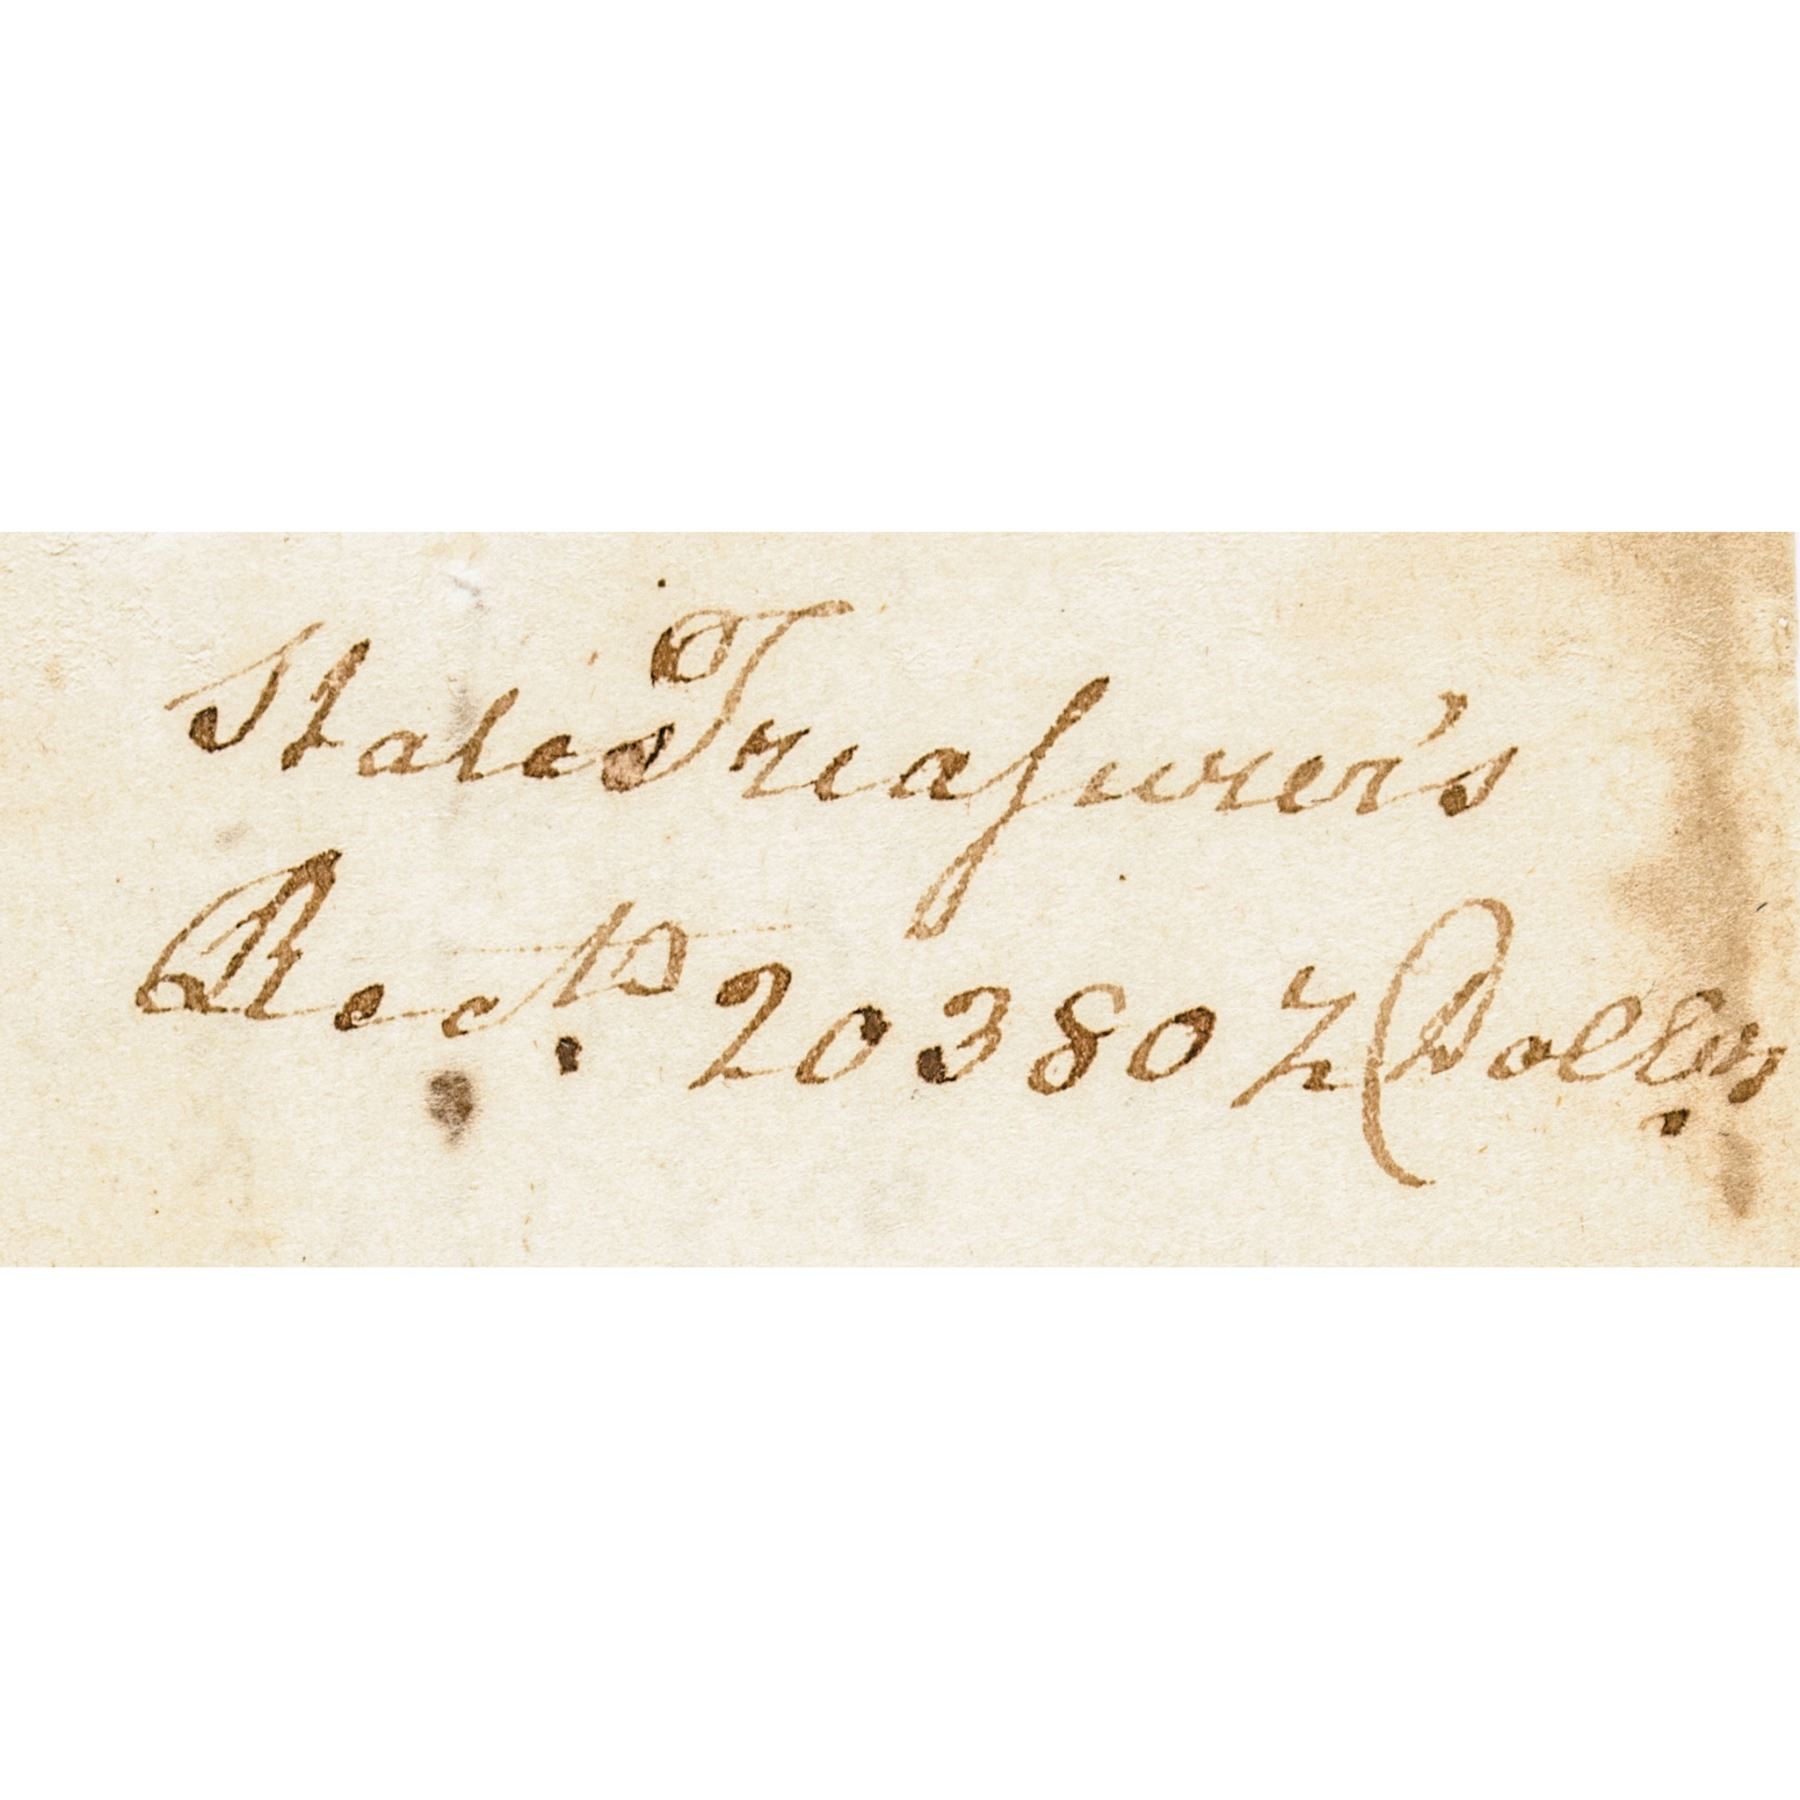 States Treasurer's
Rect. 20380 2/ Dollrs.